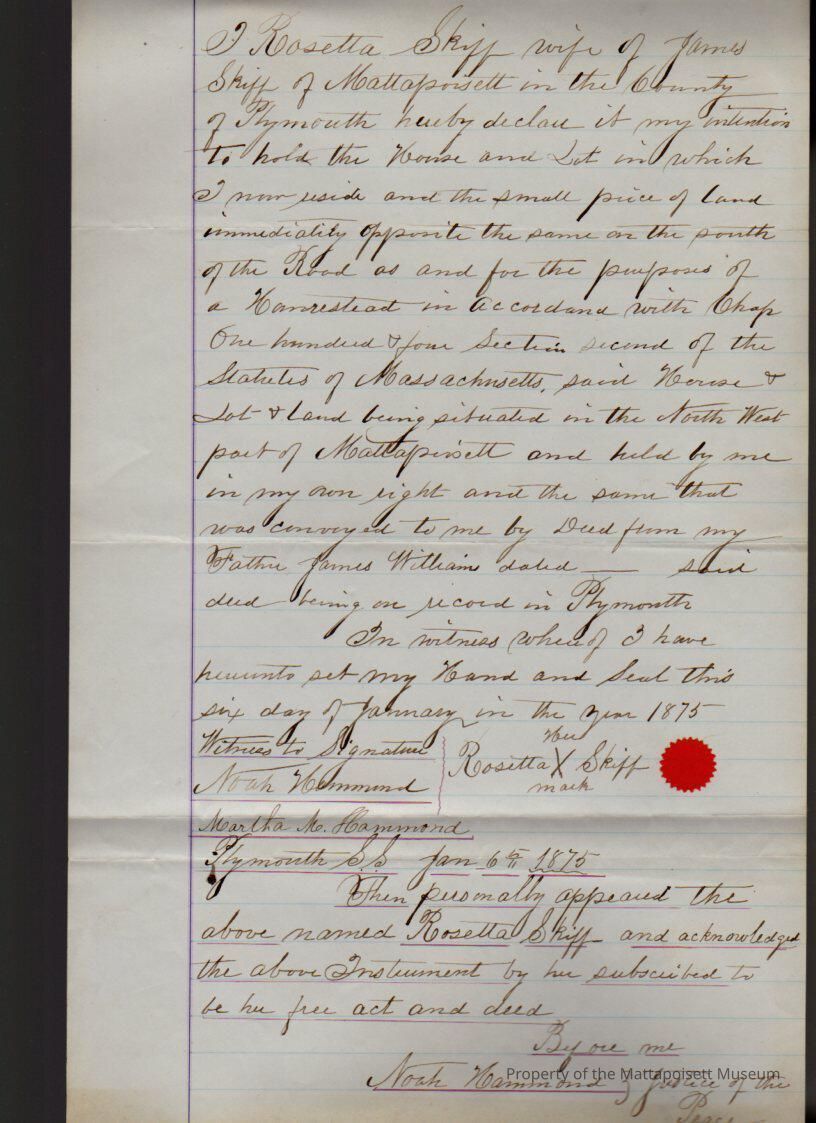 I Rosetta Skiff wife of James
Skiff of Mattapoisett in the County
of Plymouth hereby declare it my intention
to hold the House and Lot in which
I now reside and the small piece of land
immediately opposite the same on the south
of the Road as and for the purposes of
a Homestead in accordance with Chap
One hundred & four Section second of the
Statutes of Massachusetts, said House &
Lot & Land being situated in the North West
part of Mattapoisett and held by me
in my own right and the same that
was conveyed to me by Deed from my
Father James Williams dated — said
deed being on record in Plymouth
In witness whereof I have
hereunto set my Hand and Seal this
six day of January in the year 1875
Witness to Signature
Noah Hammond
Her
Rosetta X Skiff
mark
Martha M. Hammond
Plymouth S.S. Jan 6th 1875
Then personally appeared the
above named Rosetta Skiff and acknowledged
the above Instrument by her subscribed to
be her free act and deed
Before me
Noah Hammond } Justice of the
Peace
Property of the Mattapoisett Museum